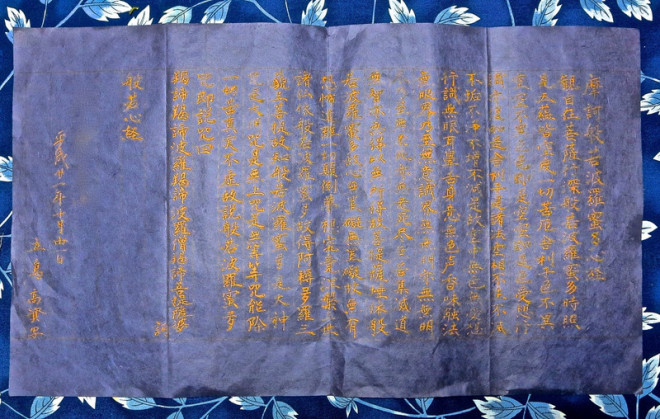 摩訶般若波羅蜜多心経
観自在菩薩行深般若波羅蜜多時照
見五蘊皆空度一切苦厄舎利子色不異
空空不異色色即是空空即是色受想行
識亦復如是舎利子是諸法空相不生不滅
不垢不浄不増不減是故空中無色無受想
行識無眼耳鼻舌身意無色声香味触法
無眼界乃至無意識界無無明亦無無明
尽乃至無老死亦無老死尽無苦集滅道
無智亦無得以無所得故菩提薩埵依般
若波羅蜜多故心無罣礙無罣礙故無有
恐怖遠離一切顛倒夢想究竟涅槃三世
諸仏依般若波羅蜜多故得阿耨多羅三
藐三菩提故知般若波羅蜜多是大神
咒是大明咒是無上咒是無等等咒能除
一切苦真実不虚故説般若波羅蜜多
咒即説咒曰
羯諦羯諦波羅羯諦波羅僧羯諦菩提薩婆
訶
般若心経
平成廿一年十月 日